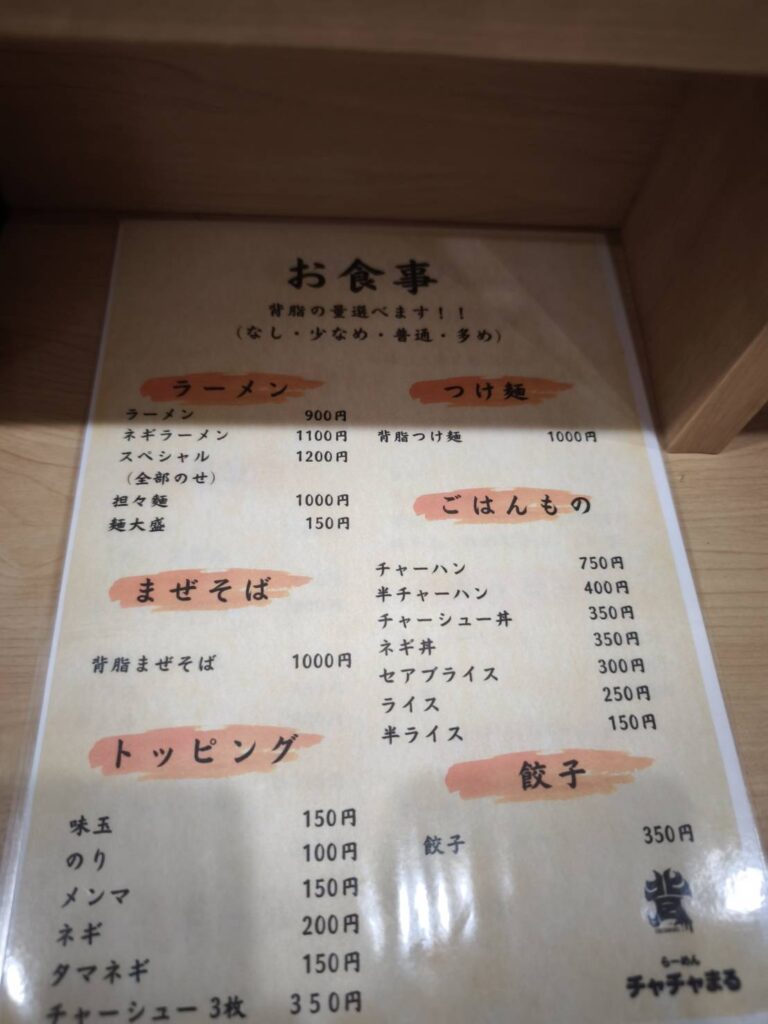 お食事
背脂の量選べます！！
（なし・少なめ・普通・多め）
ラーメン
ラーメン 900円
ネギラーメン 1100円
スペシャル 1200円
（全部のせ）
担々麺 1000円
麺大盛 150円
まぜそば
背脂まぜそば 1000円
トッピング
味玉 150円
のり 100円
メンマ 150円
ネギ 200円
タマネギ 150円
チャーシュー 3枚 350円
つけ麺
背脂つけ麺 1000円
ごはんもの
チャーハン 750円
半チャーハン 400円
チャーシュー丼 350円
ネギ丼 350円
セアブライス 300円
ライス 250円
半ライス 150円
餃子
餃子 350円
背
らーめん
チャチャまる